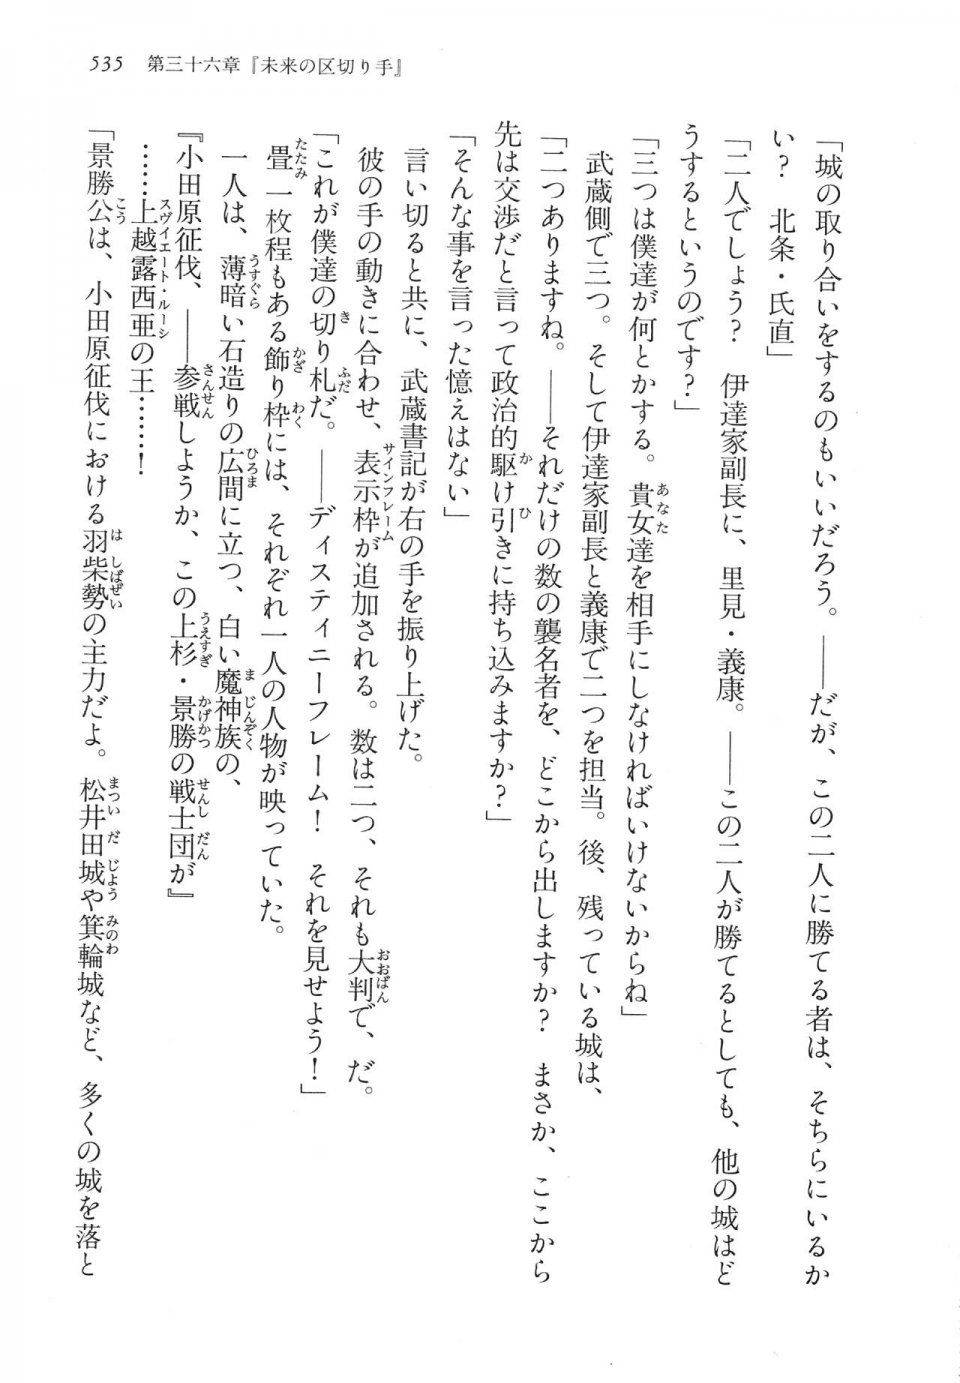 535　第三十六章『未来の区切り手』
「城の取り合いをするのもいいだろう。――だが、この二人に勝てる者は、そちらにいるか
い？　北条・氏直」
「二人でしょう？　伊達家副長に、里見・義康。――この二人が勝てるとしても、他の城はど
うするというのです？」
「三つは僕達が何とかする。貴女達を相手にしなければいけないからね」
　武蔵側で三つ。そして伊達家副長と義康で二つを担当。後、残っている城は、
「二つありますね。――それだけの数の襲名者を、どこから出しますか？　まさか、ここから
先は交渉だと言って政治的駆け引きに持ち込みますか？」
「そんな事を言った憶えはない」
　言い切ると共に、武蔵書記が右の手を振り上げた。
　彼の手の動きに合わせ、表示枠が追加される。数は二つ、それも大判で、だ。
「これが僕達の切り札だ。――ディスティニーフレーム！　それを見せよう！」
　畳一枚程もある飾り枠には、それぞれ一人の人物が映っていた。
　一人は、薄暗い石造りの広間に立つ、白い魔神族の、
『小田原征伐、――参戦しようか、この上杉・景勝の戦士団が』
　……上越露西亜の王……！
「景勝公は、小田原征伐における羽柴勢の主力だよ。松井田城や箕輪城など、多くの城を落と